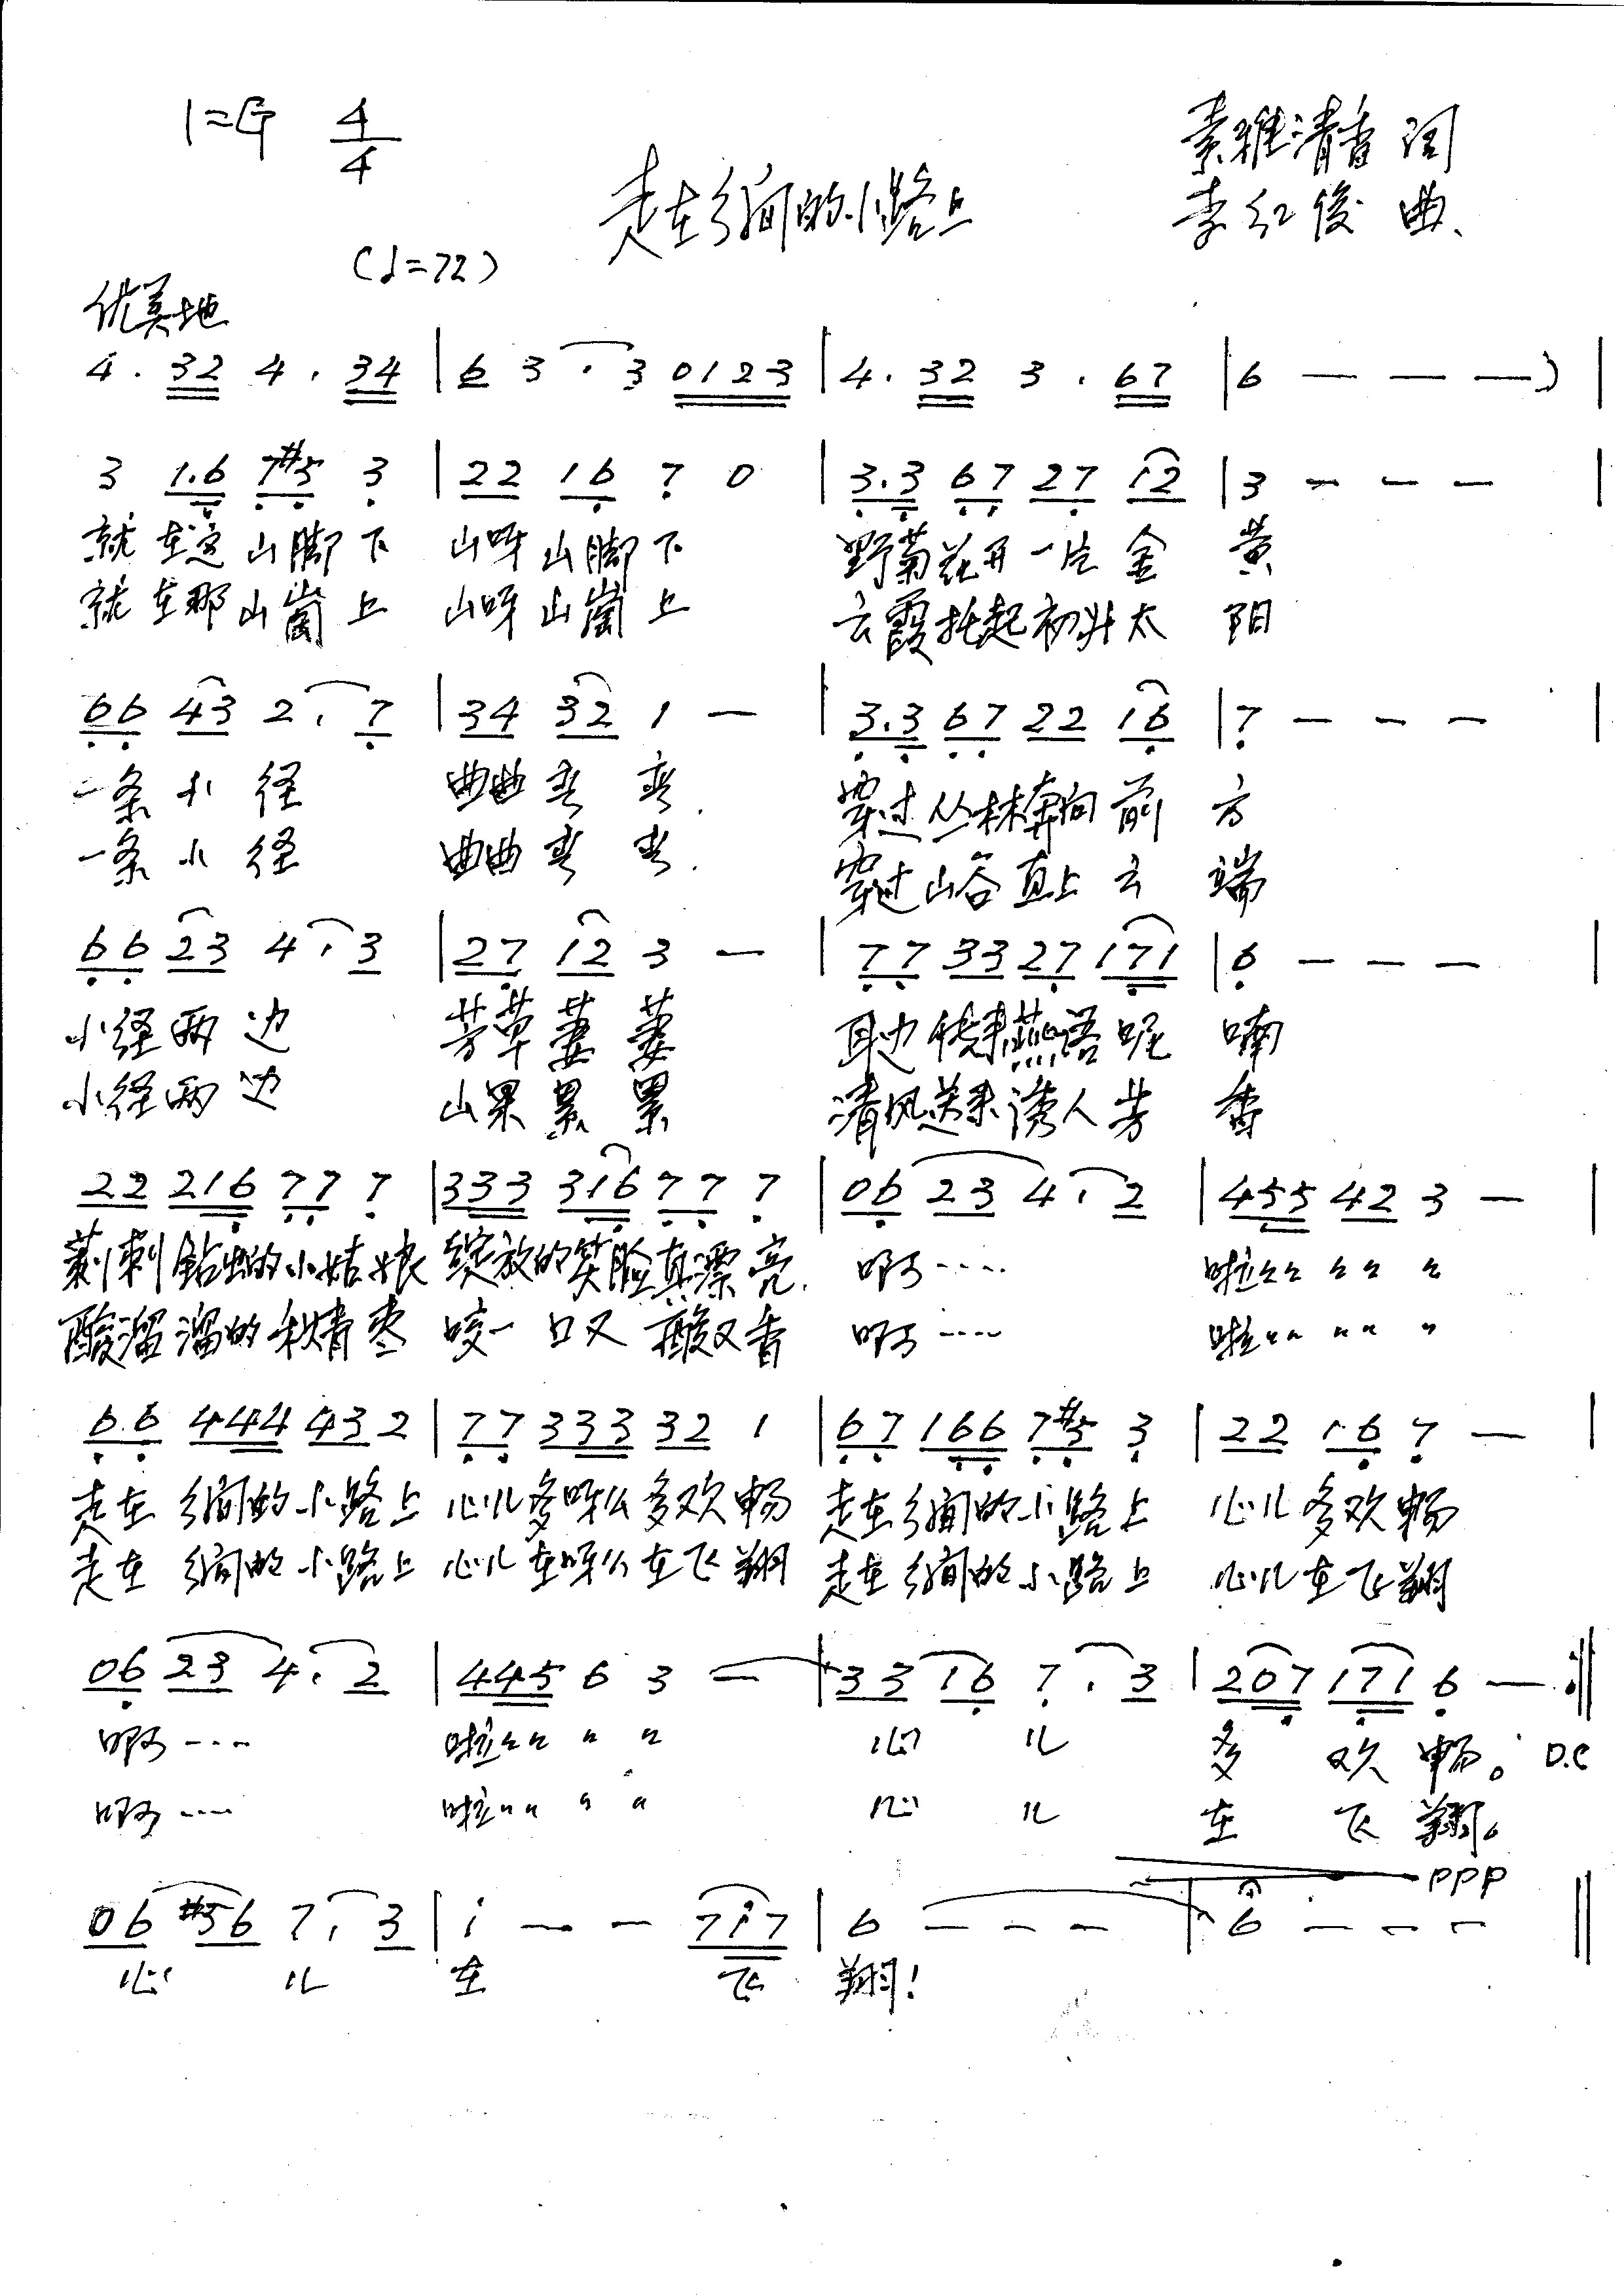 1=G 4/4
素雅清香 词
走在乡间的小路上
李红俊 曲、
(♩=72)
优美地
4 . 32 4 . 34 | 6 3 . 3 0123 | 4 . 32 3 . 67 | 6 — — —) |
3 1.6 7#5 3 | 22 16 7 0 | 3.3 67 27 12 | 3 — — — |
就在这山脚下 山呀山脚下 野菊花开一片金黄
就在那山崗上 山呀山崗上 云霞托起初升太阳
66 43 2 . 7 | 34 32 1 — | 3.3 67 22 16 | 7 — — — |
一条小径 曲曲弯弯. 穿过丛林奔向前方
一条小径 曲曲弯弯. 穿过山谷直上云端
66 23 4 . 3 | 27 12 3 — | 77 33 27 171 | 6 — — — |
小径两边 芳草萋萋 耳边传来燕语呢喃
小径两边 山果累累 清风送来诱人芳香
22 216 77 7 | 333 316 77 7 | 06 23 4 . 2 | 455 42 3 — |
刺钻出的小姑娘 绽放的笑脸真漂亮. 啊···· 啦〃〃 〃〃 〃
酸溜溜的秋青枣 咬一口又酸又香 啊···· 啦〃〃 〃〃 〃
6.6 444 43 2 | 77 333 32 1 | 67 166 7#5 3 | 22 1.6 7 — |
走在乡间的小路上 心儿多呀么多欢畅 走在乡间的小路上 心儿多欢畅
走在乡间的小路上 心儿在呀么在飞翔 走在乡间的小路上 心儿在飞翔
06 23 4 . 2 | 445 6 3 — | 33 16 7 . 3 | 207 171 6 — :||
啊···· 啦〃〃 〃 〃 心儿 多欢畅。 D.C
啊···· 啦〃〃 〃 〃 心儿 在飞翔。
ppp
06 #56 7 . 3 | i — — 7i7 | 6 — — — | 6 — — — ||
心儿 在 飞 翔!